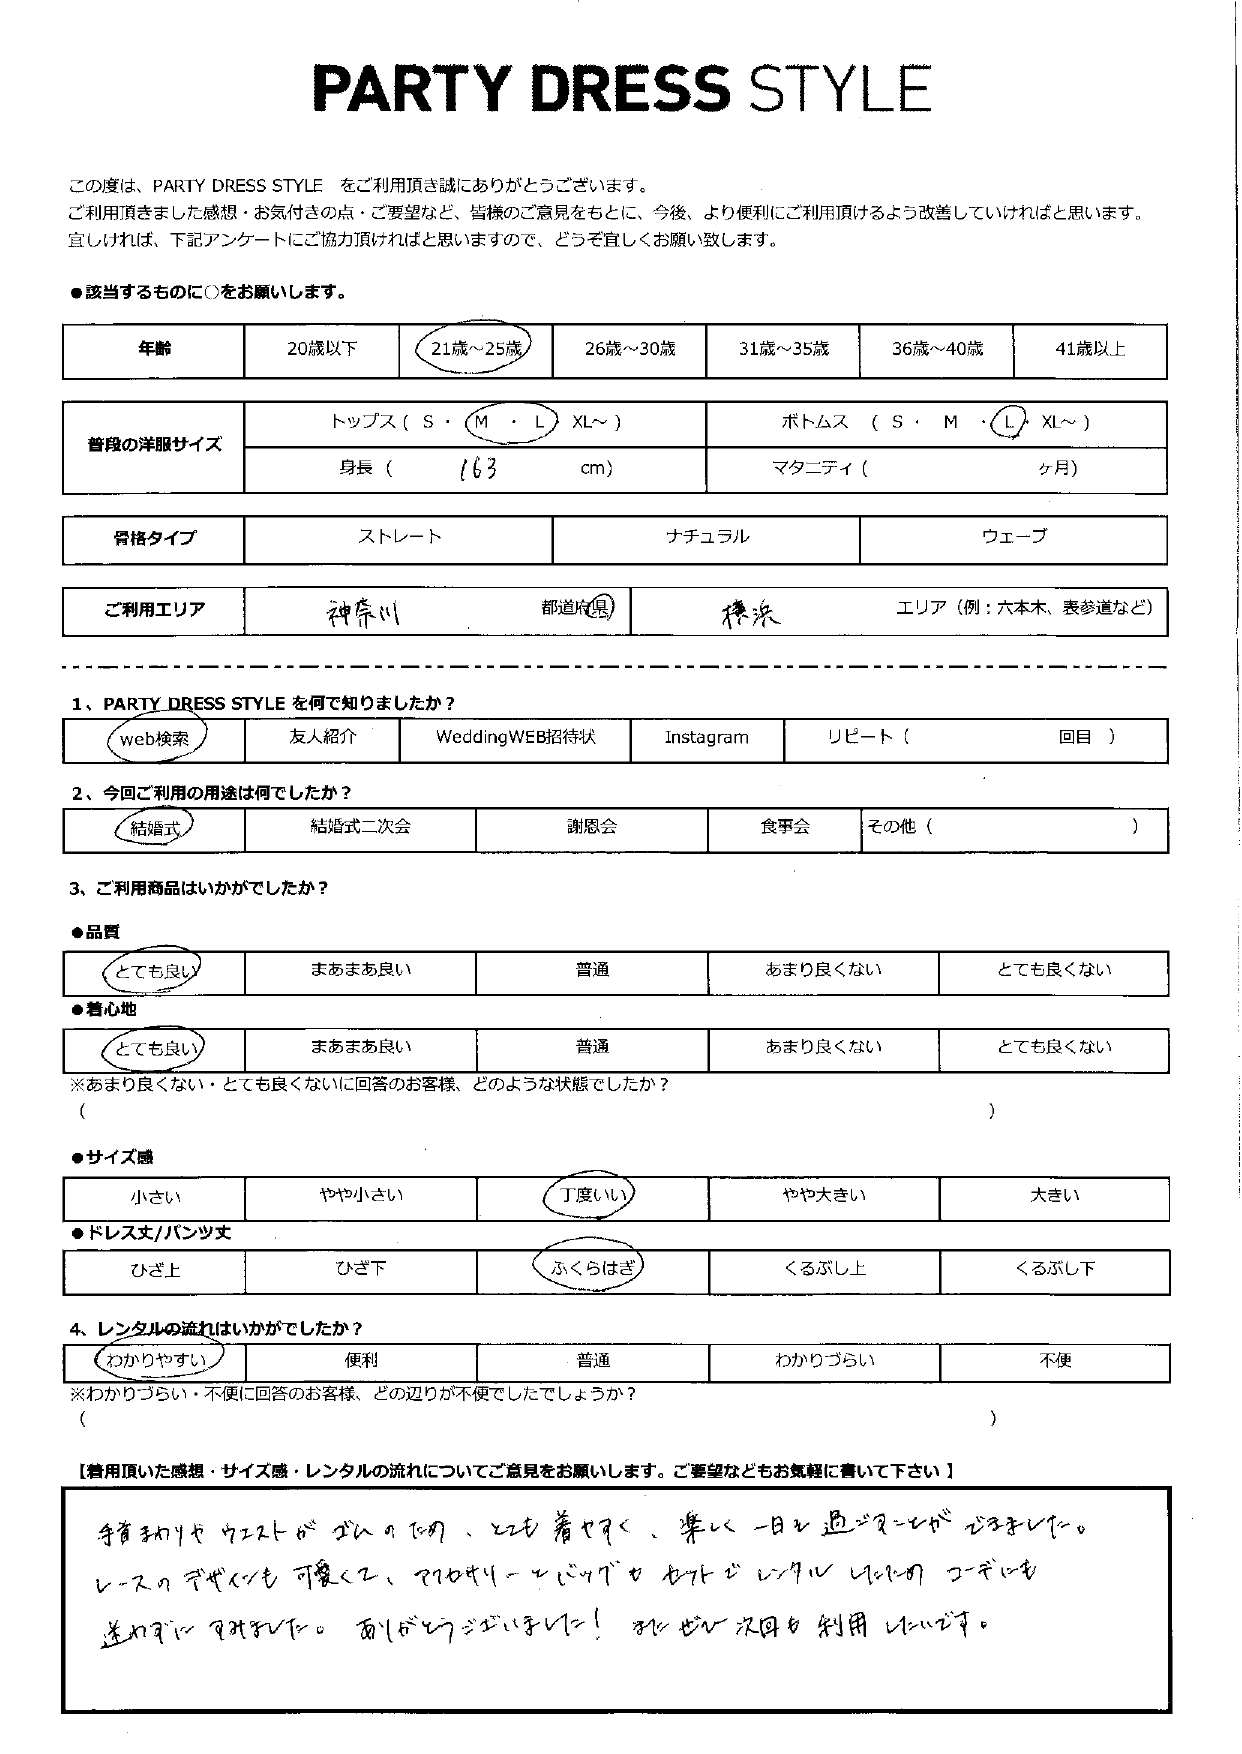 PARTY DRESS STYLE
この度は、PARTY DRESS STYLE をご利用頂き誠にありがとうございます。
ご利用頂きました感想・お気付きの点・ご要望など、皆様のご意見をもとに、今後、より便利にご利用頂けるよう改善していければと思います。
宜しければ、下記アンケートにご協力頂ければと思いますので、どうぞ宜しくお願い致します。
●該当するものに○をお願いします。
年齢 20歳以下 21歳～25歳 26歳～30歳 31歳～35歳 36歳～40歳 41歳以上
普段の洋服サイズ トップス ( S ・ M ・ L ・ XL～ ) ボトムス ( S ・ M ・ L ・ XL～ )
身長 ( 163 cm) マタニティ ( ヶ月)
骨格タイプ ストレート ナチュラル ウェーブ
ご利用エリア 神奈川 都道府県 横浜 エリア（例：六本木、表参道など）
1、PARTY DRESS STYLE を何で知りましたか？
web検索 友人紹介 WeddingWEB招待状 Instagram リピート ( 回目 )
2、今回ご利用の用途は何でしたか？
結婚式 結婚式二次会 謝恩会 食事会 その他 ( )
3、ご利用商品はいかがでしたか？
●品質
とても良い まあまあ良い 普通 あまり良くない とても良くない
●着心地
とても良い まあまあ良い 普通 あまり良くない とても良くない
※あまり良くない・とても良くないに回答のお客様、どのような状態でしたか？
( )
●サイズ感
小さい やや小さい 丁度いい やや大きい 大きい
●ドレス丈/パンツ丈
ひざ上 ひざ下 ふくらはぎ くるぶし上 くるぶし下
4、レンタルの流れはいかがでしたか？
わかりやすい 便利 普通 わかりづらい 不便
※わかりづらい・不便に回答のお客様、どの辺りが不便でしたでしょうか？
( )
【着用頂いた感想・サイズ感・レンタルの流れについてご意見をお願いします。ご要望などもお気軽に書いて下さい 】
手首まわりや ウエストが ゴムのため、とても着やすく、楽しく一日を過ごすことができました。
レースのデザインも可愛くて、アクセサリーやバッグもセットでレンタルしたためコーデにも
迷わずにすみました。ありがとうございました！またぜひ次回も利用したいです。